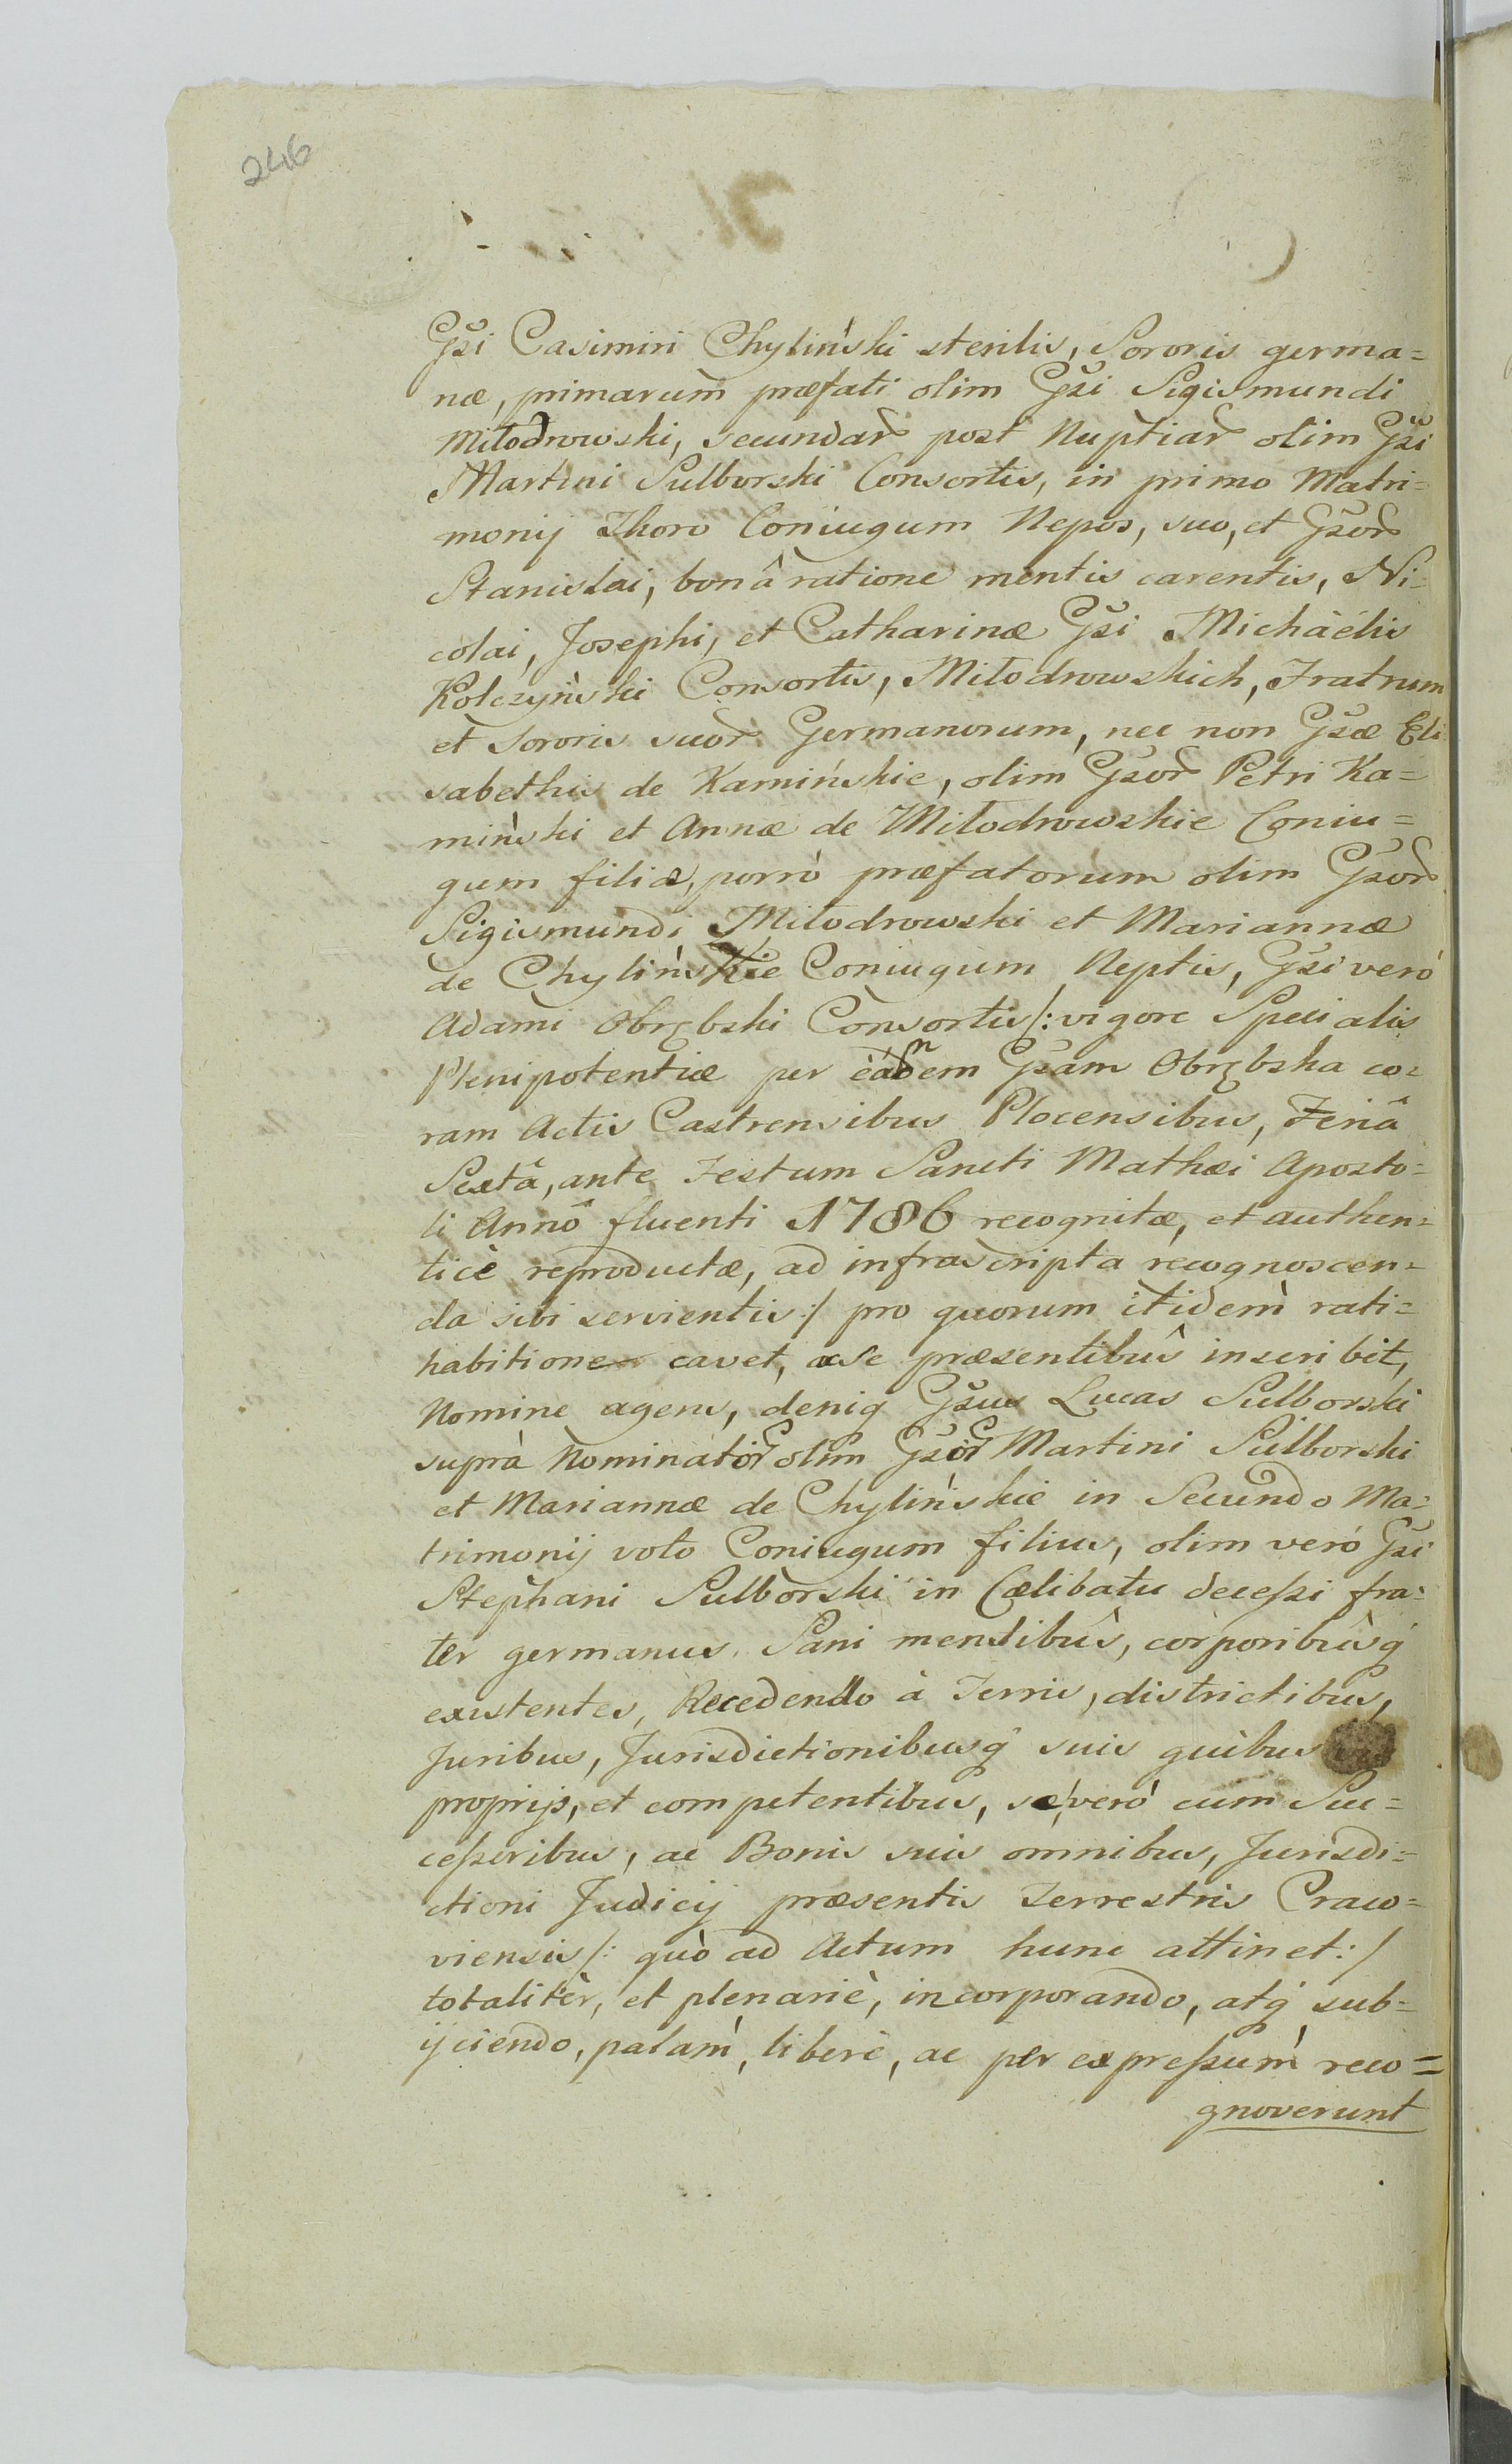 246
Gsi Casimiri Chyliński sterilis, Sororis germa=
næ, primarum præfati olim Gsi Sigismundi
Miłodrowski, secundar post Nuptiar olim Gsi
Martini Sulborski Consortis, in primo Matri=
monij Thoro Coniugum Nepos, suo, et Gsor
Stanislai, bonâ ratione mentis carentis, Ni=
colai, Josephi, et Catharinæ Gsi Michaèlis
Kolczyński Consortis, Miłodrowskich, Fratrum
et Sororis suor Germanorum, nec non Gsæ Eli
sabethis de Kamińskie, olim Gsor Petri Ka=
miński et Annæ de Miłodrowskie Coniu=
gum filiæ, porrò præfatorum olim Gsor
Sigismundi Miłodrowski et Mariannæ
de Chylińskie Coniugum Neptis, Gsi verò
Adami Obrębski Consortis /: vigore Specialis
Plenipotentiæ per eandem Gsam Obrębska co=
ram Actis Castrensibus Plocensibus, Feriâ
Sextâ, ante Festum Sancti Mathæi Aposto=
li Annô fluenti 1786 recognitæ, et authen=
ticè reproductæ, ad infrascripta recognoscen=
da sibi servientis :/ pro quorum itidem rati=
habitione cavet, ac se præsentibus inscribit,
Nomine agens, deniq Gsus Lucas Sulborski
suprà Nominator olim Gsor Martini Sulborski
et Mariannæ de Chylińskie in Secundo Ma=
trimonij voto Coniugum filius, olim verò Gsi
Stephani Sulborski in Cælibatu decessi fra=
ter germanus. Sani mentibus, corporibusq
existentes, Recedendo à Terris, districtibus,
Juribus, Jurisdictionibusq suis quibus vis
proprijs, et competentibus, se verò cum Suc=
cessoribus, ac Bonis suis omnibus, Jurisdi=
ctioni Judicij præsentis Terrestris Craco=
viensis /: quò ad Actum hunc attinet :/
totalitèr, et plenariè, incorporando, atq sub=
ijciendo, palam, liberè, ac per expressum reco=
gnoverunt